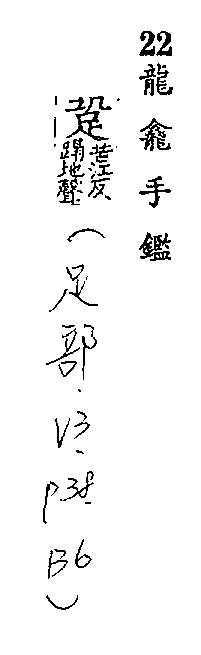 22龍龕手鑑
跫苦江反蹋地聲
(足部.V3.P38.B6)